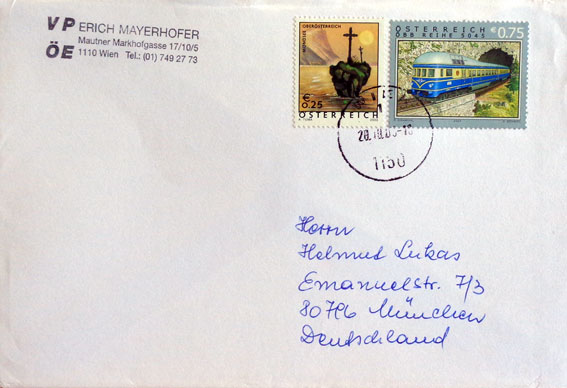 V P ERICH MAYERHOFER
Mautner Markhofgasse 17/10/5
ÖE 1110 Wien Tel.: (01) 749 27 73
OBERÖSTERREICH
€ 0.25
ÖSTERREICH
ÖSTERREICH €0.75
ÖBB REIHE 5045
1150
Herrn
Helmut Lukas
Emanuelstr. 7/3
80796 München
Deutschland